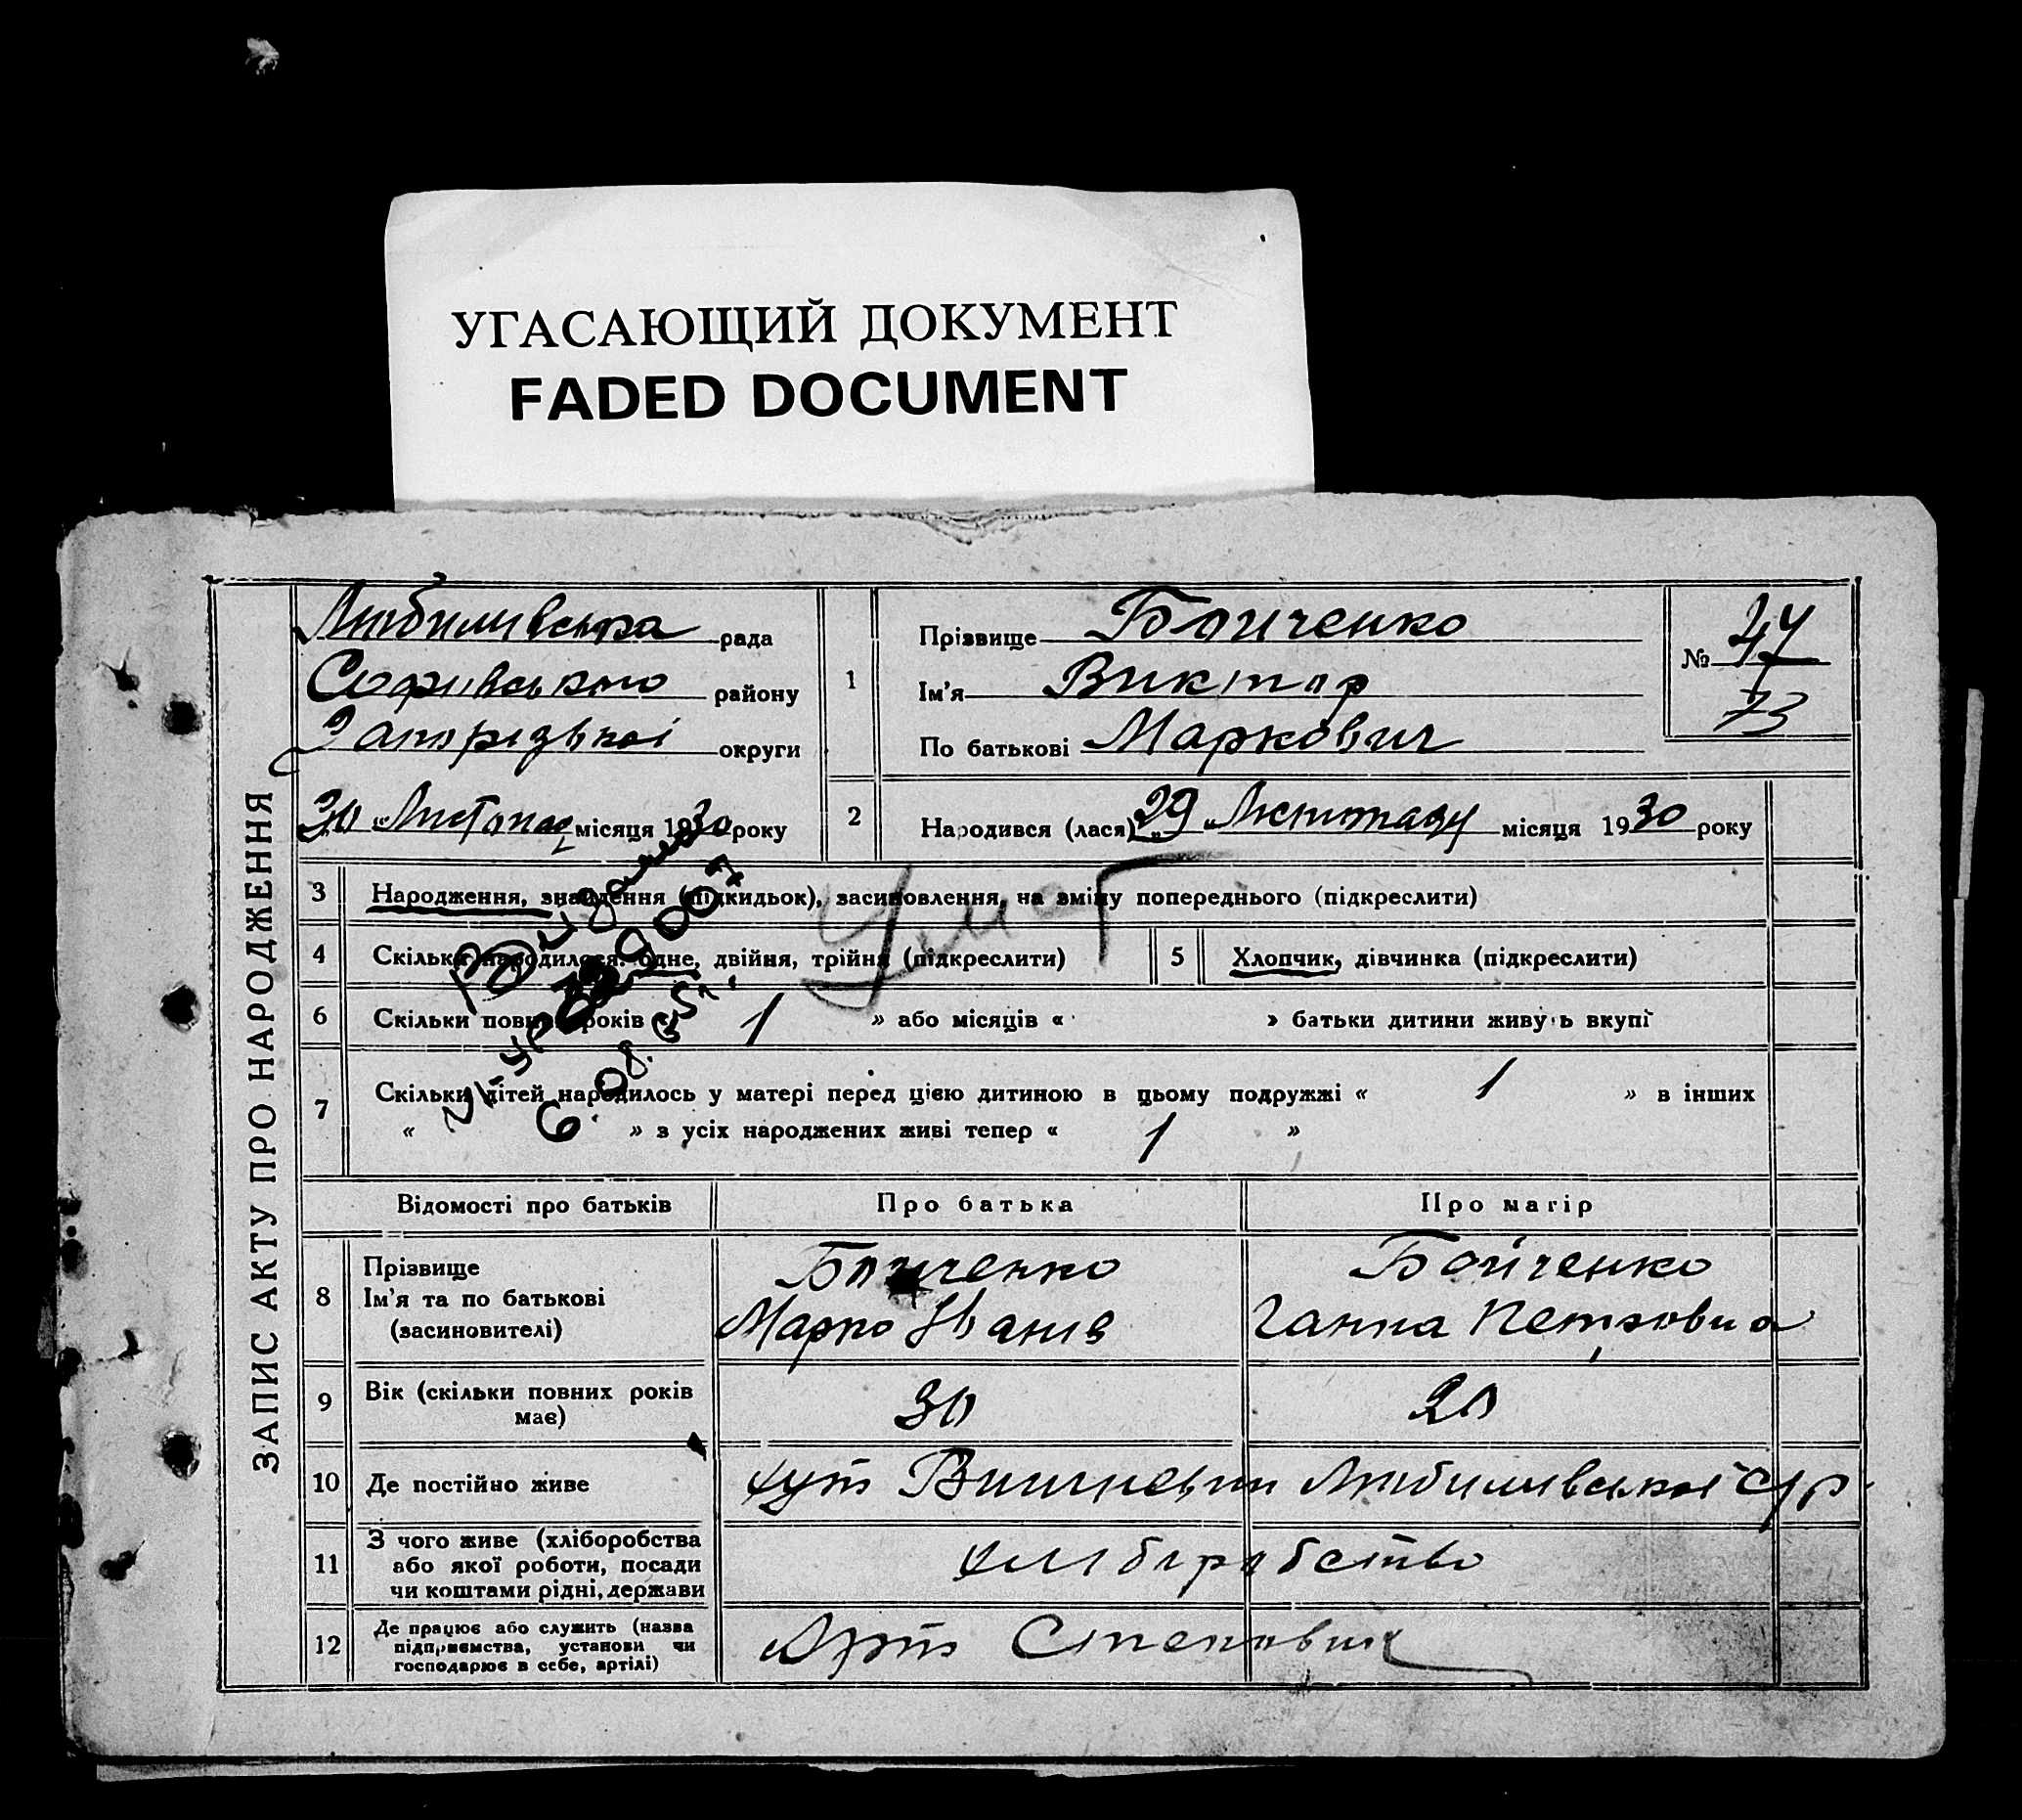 УГАСАЮЩИЙ ДОКУМЕНТ
FADED DOCUMENT
ЗАПИС АКТУ ПРО НАРОДЖЕННЯ
Любимивська рада
району
Запорізької округи
30 « Листопад місяця 1930 року
1
Прізвище Бойченко
Ім'я Виктор
По батькові Маркович
№ 47
73
2
Народився (лася) „29 „ Листопаду місяця 1930 року
3 Народження, знайдення (підкидьок), засиновлення, на зміну попереднього (підкреслити)
4 Скільки народилося: одне, двійня, трійня (підкреслити)
5 Хлопчик, дівчинка (підкреслити)
6 Скільки повних років « 1 » або місяців « » батьки дитини живуть вкупі
7 Скільки дітей народилось у матері перед цією дитиною в цьому подружжі « 1 » в інших
« » з усіх народжених живі тепер « 1 »
Відомості про батьків
Про батька
Про матір
8 Прізвище
Ім'я та по батькові
(засиновителі)
Бойченко
Марко Іванів
Бойченко
Ганна Петровна
9 Вік (скільки повних років
має)
30
20
10 Де постійно живе
хут Вишневий Любимивської с/р
11 З чого живе (хліборобства
або якої роботи, посади
чи коштами рідні, держави
хліборобство
12 Де працює або служить (назва
підприємства, установи чи
господарює в себе, артілі)
Арт Степовик